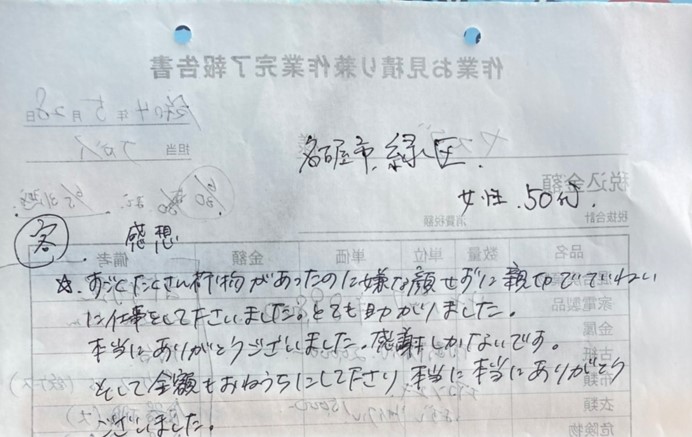 作業お見積り兼作業完了報告書
令和4年5月28日
担当
名古屋市.緑区.
税込金額
女性.50代.
税抜合計
消費税額
客. 感想
品名 数量 単位 単価 金額 備考
☆. すごくたくさん荷物があったのに嫌な顔せずに親切でていねい
家電製品
に仕事をして下さいました。とても助かりました。
金属
本当にありがとうございました。感謝しかないです。
古紙
そして金額もおねうちにして下さり 本当に本当にありがとう
布類
衣類
ございました。
危険物